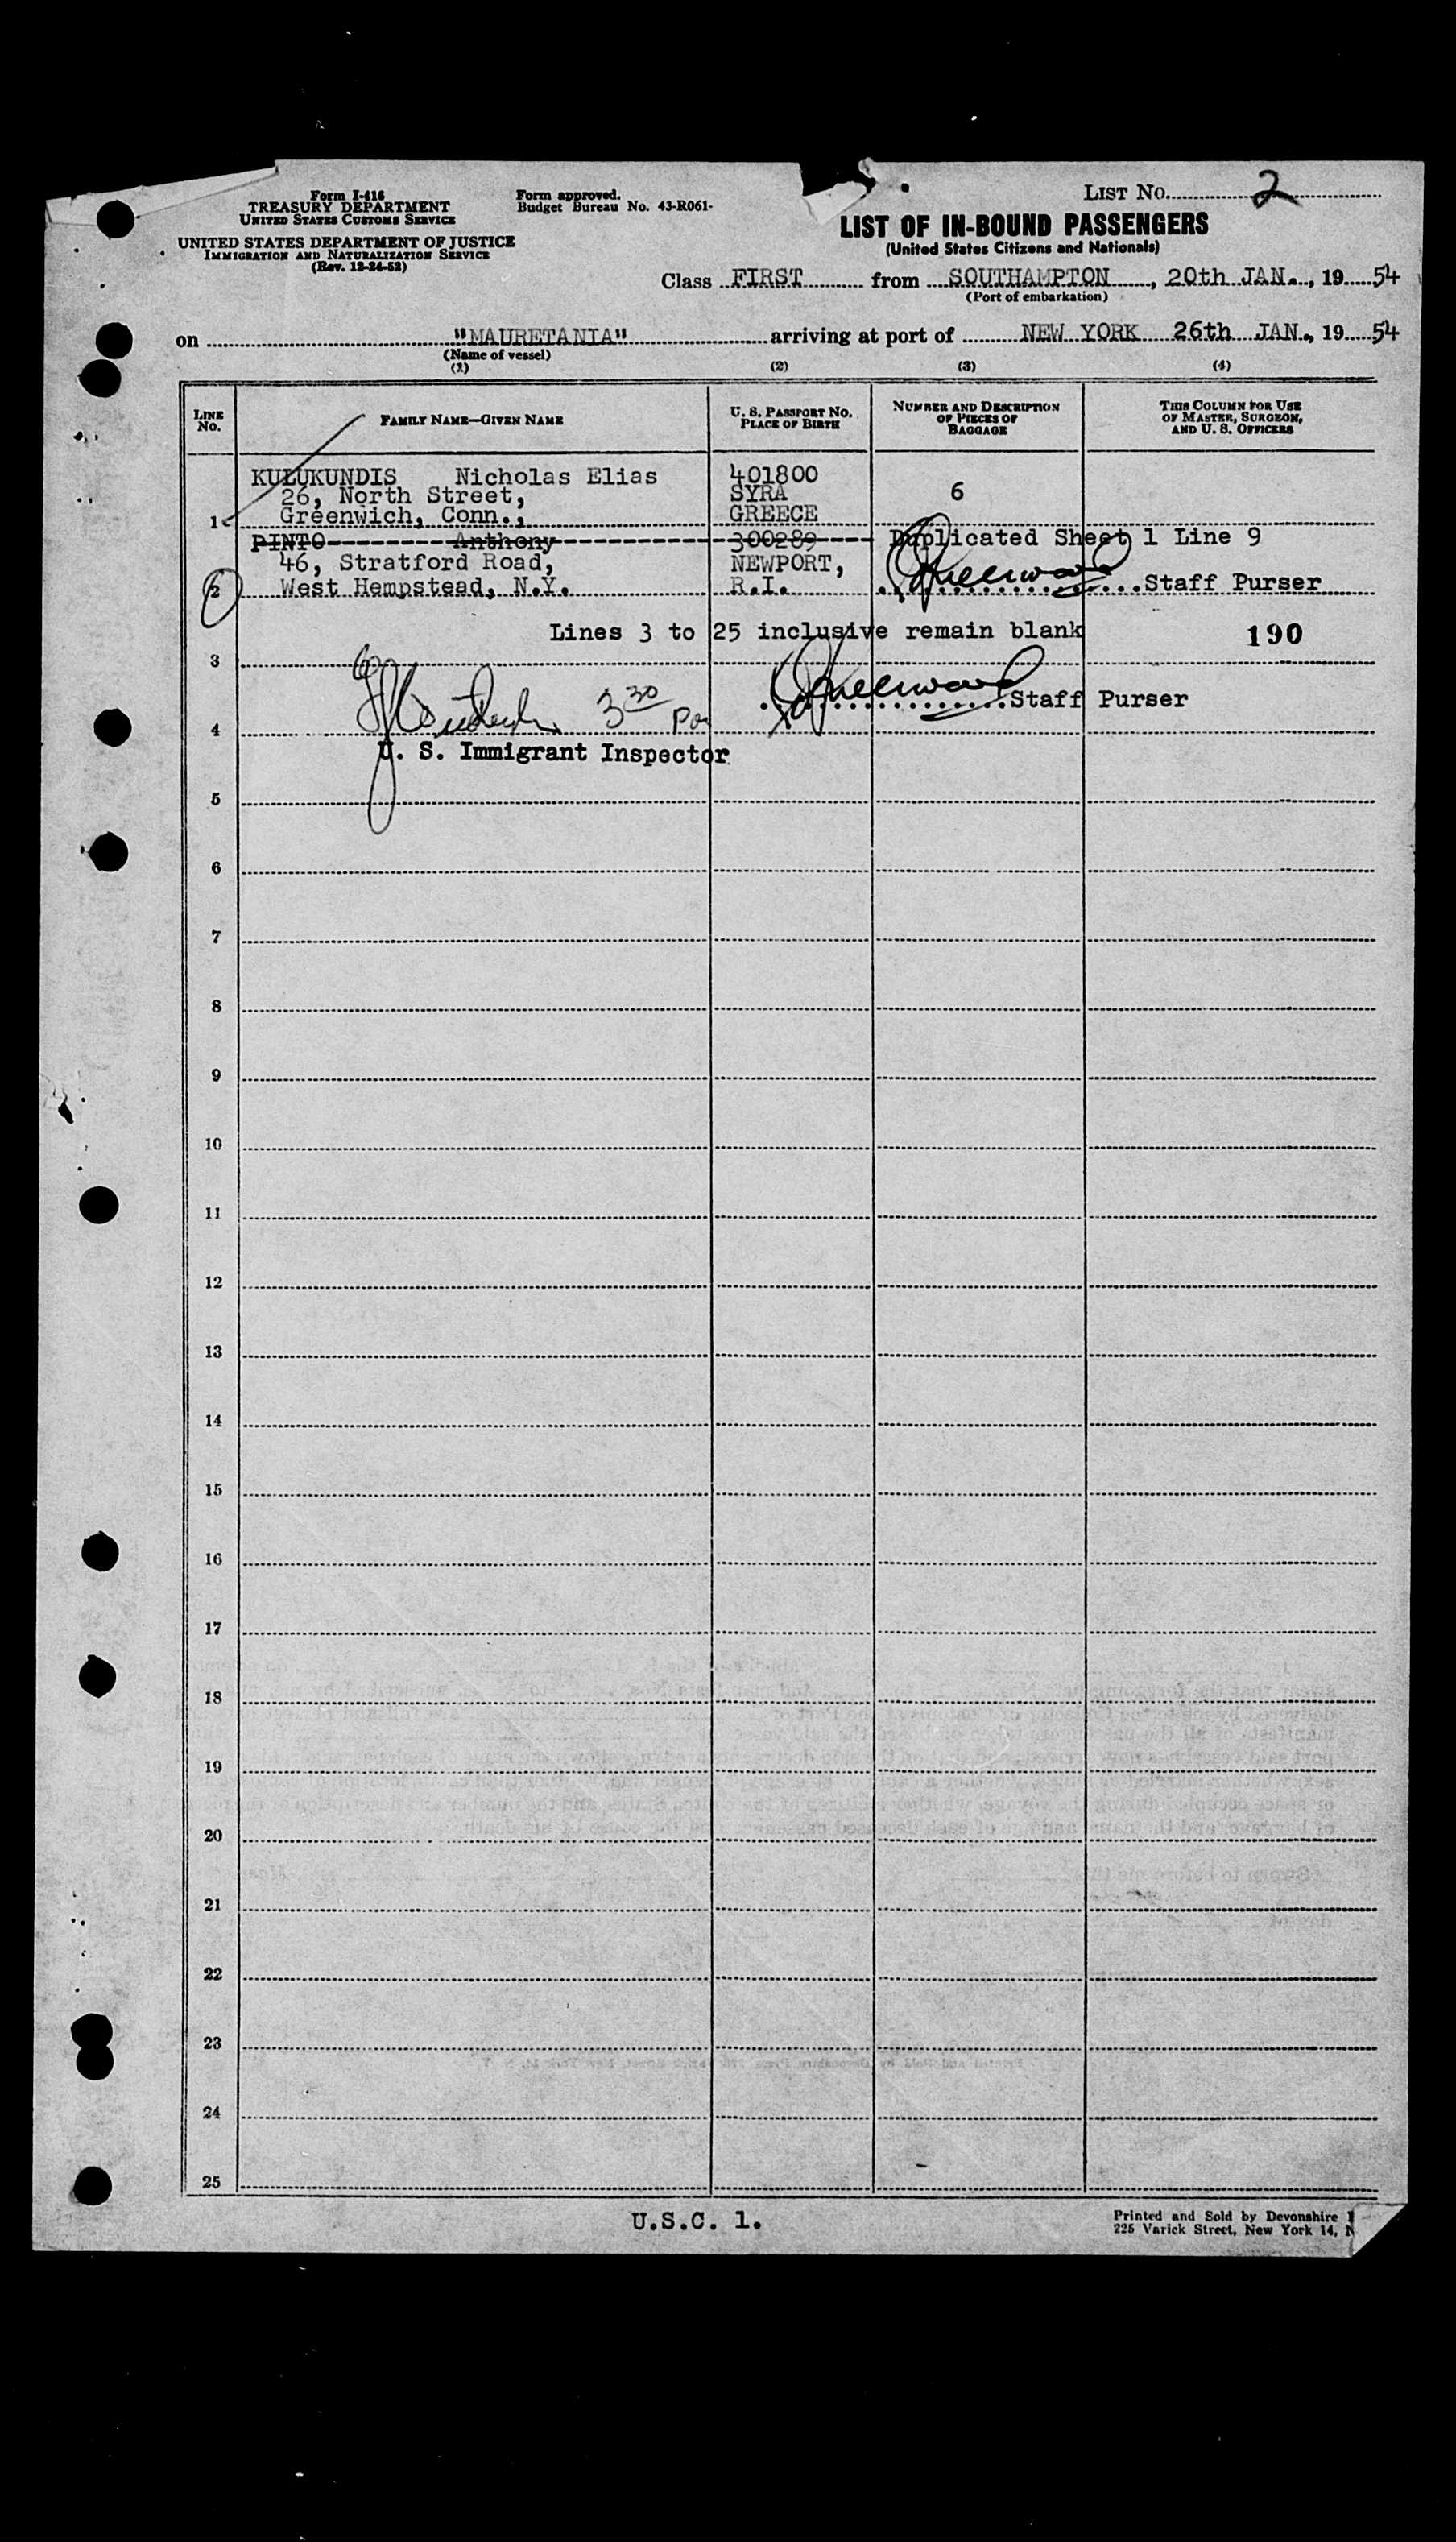 Form I-416
TREASURY DEPARTMENT
UNITED STATES CUSTOMS SERVICE
UNITED STATES DEPARTMENT OF JUSTICE
IMMIGRATION AND NATURALIZATION SERVICE
(Rev. 12-24-52)
Form approved.
Budget Bureau No. 43-R061-
LIST NO. 2
LIST OF IN-BOUND PASSENGERS
(United States Citizens and Nationals)
Class FIRST from SOUTHAMPTON, 20th JAN., 19 54
(Port of embarkation)
on "MAURETANIA" arriving at port of NEW YORK 26th JAN., 19 54
(Name of vessel)
(1) (2) (3) (4)
LINE NO. FAMILY NAME—GIVEN NAME U. S. PASSPORT NO. PLACE OF BIRTH NUMBER AND DESCRIPTION OF PIECES OF BAGGAGE THIS COLUMN FOR USE OF MASTER, SURGEON, AND U. S. OFFICERS
KULUKUNDIS Nicholas Elias 401800
26, North Street, SYRA 6
1 Greenwich, Conn., GREECE
PINTO Anthony 300289 Duplicated Sheet 1 Line 9
46, Stratford Road, NEWPORT,
2 West Hempstead, N.Y. R.I. Staff Purser
Lines 3 to 25 inclusive remain blank 190
3
3 30 Staff Purser
4
U. S. Immigrant Inspector
5
6
7
8
9
10
11
12
13
14
15
16
17
18
19
20
21
22
23
24
25
U.S.C. 1.
Printed and Sold by Devonshire
225 Varick Street, New York 14, N